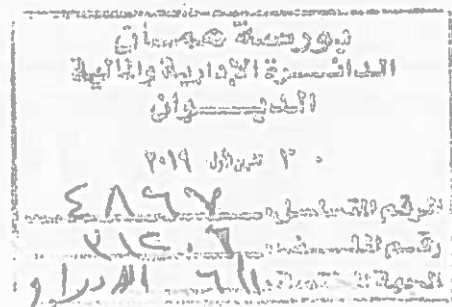 بورصة عمان
الدائرة الإدارية والمالية
الديوان
٣٠ تموز ٢٠١٩
الرقم المتسلسل ٤٨٦٧
رقم الملف
الجهة المختصة الإدراج